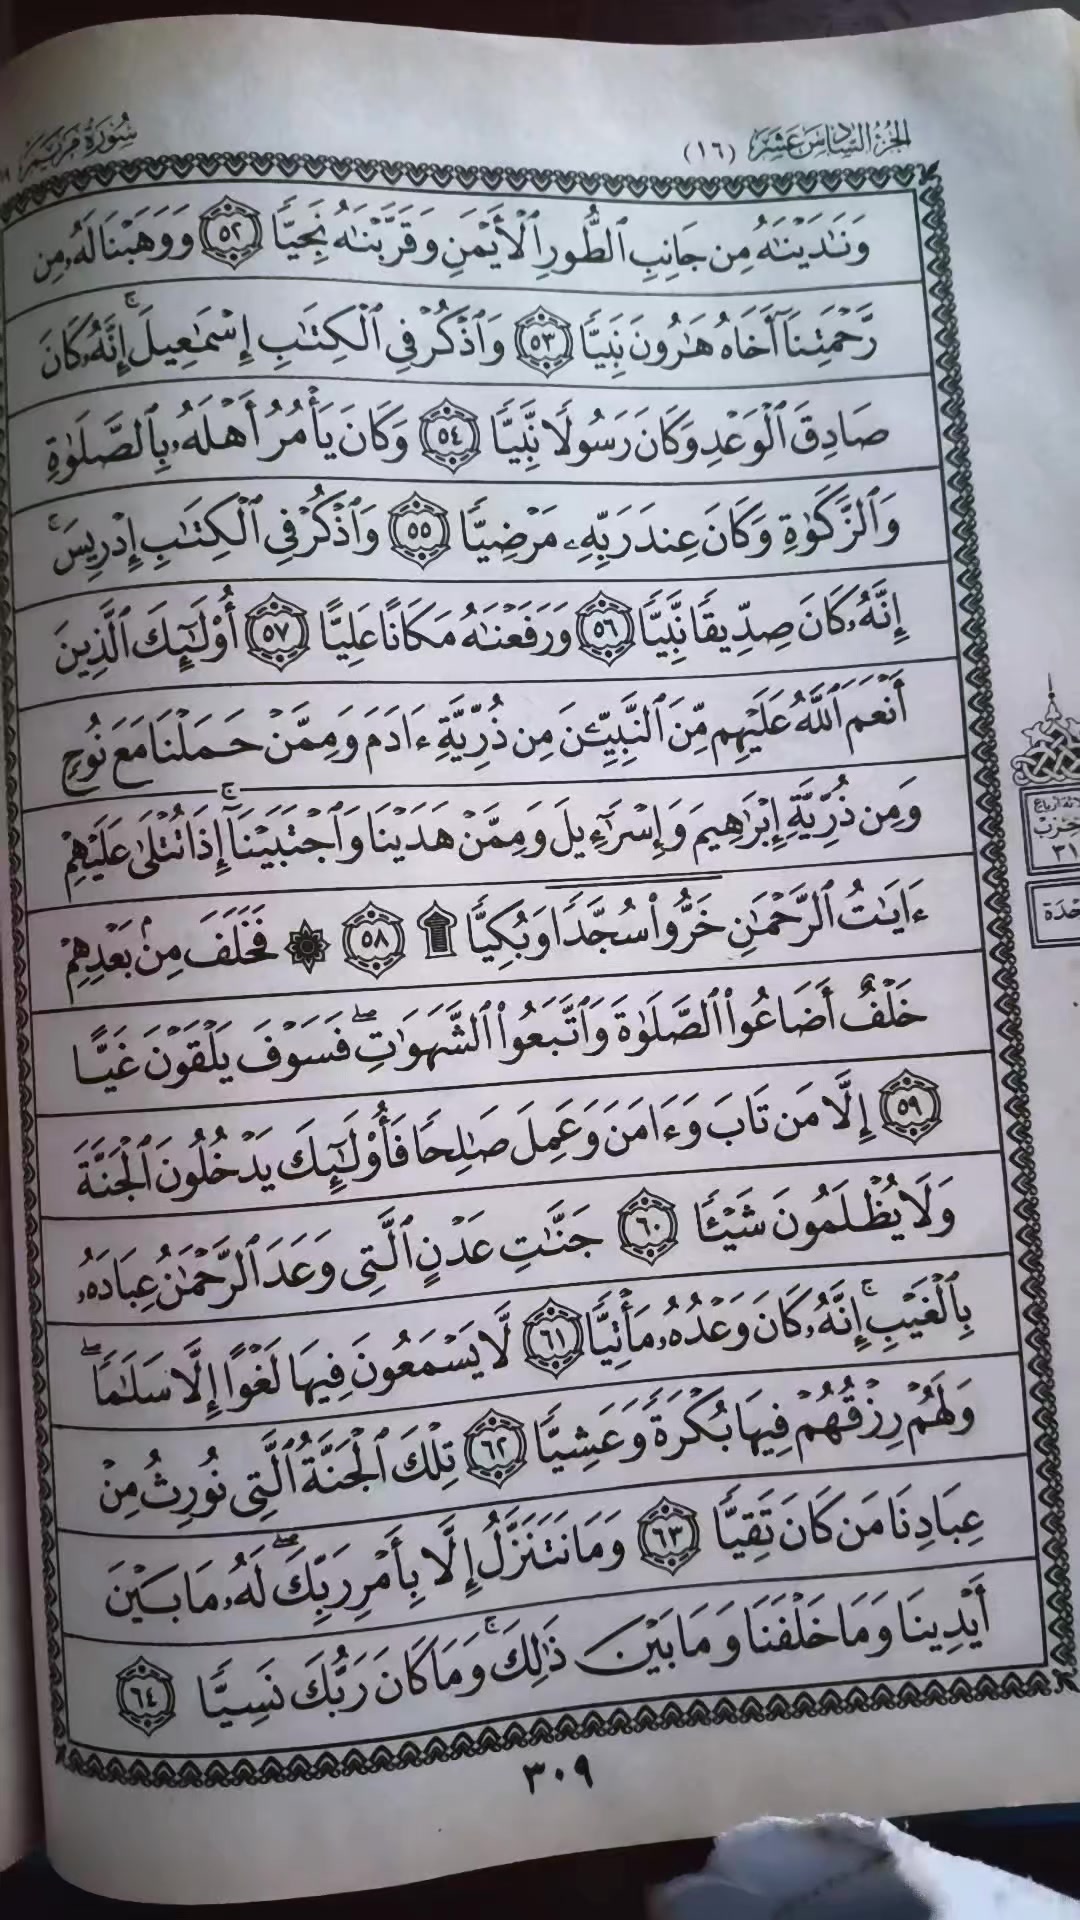 الجزء السادس عشر (١٦) سورة مريم
وَنَٰدَيۡنَٰهُ مِن جَانِبِ ٱلطُّورِ ٱلۡأَيۡمَنِ وَقَرَّبۡنَٰهُ نَجِيّٗا ٥٢ وَوَهَبۡنَا لَهُۥ مِن
رَّحۡمَتِنَآ أَخَاهُ هَٰرُونَ نَبِيّٗا ٥٣ وَٱذۡكُرۡ فِي ٱلۡكِتَٰبِ إِسۡمَٰعِيلَۚ إِنَّهُۥ كَانَ
صَادِقَ ٱلۡوَعۡدِ وَكَانَ رَسُولٗا نَّبِيّٗا ٥٤ وَكَانَ يَأۡمُرُ أَهۡلَهُۥ بِٱلصَّلَوٰةِ
وَٱلزَّكَوٰةِ وَكَانَ عِندَ رَبِّهِۦ مَرۡضِيّٗا ٥٥ وَٱذۡكُرۡ فِي ٱلۡكِتَٰبِ إِدۡرِيسَۚ
إِنَّهُۥ كَانَ صِدِّيقٗا نَّبِيّٗا ٥٦ وَرَفَعۡنَٰهُ مَكَانًا عَلِيًّا ٥٧ أُوْلَٰٓئِكَ ٱلَّذِينَ
أَنۡعَمَ ٱللَّهُ عَلَيۡهِم مِّنَ ٱلنَّبِيِّـۧنَ مِن ذُرِّيَّةِ ءَادَمَ وَمِمَّنۡ حَمَلۡنَا مَعَ نُوحٖ
وَمِن ذُرِّيَّةِ إِبۡرَٰهِيمَ وَإِسۡرَٰٓءِيلَ وَمِمَّنۡ هَدَيۡنَا وَٱجۡتَبَيۡنَآۚ إِذَا تُتۡلَىٰ عَلَيۡهِمۡ
ءَايَٰتُ ٱلرَّحۡمَٰنِ خَرُّواْ سُجَّدٗا وَبُكِيّٗا ۩ ٥٨ ۞ فَخَلَفَ مِنۢ بَعۡدِهِمۡ
خَلۡفٌ أَضَاعُواْ ٱلصَّلَوٰةَ وَٱتَّبَعُواْ ٱلشَّهَوَٰتِۖ فَسَوۡفَ يَلۡقَوۡنَ غَيًّا
٥٩ إِلَّا مَن تَابَ وَءَامَنَ وَعَمِلَ صَٰلِحٗا فَأُوْلَٰٓئِكَ يَدۡخُلُونَ ٱلۡجَنَّةَ
وَلَا يُظۡلَمُونَ شَيۡـٔٗا ٦٠ جَنَّٰتِ عَدۡنٍ ٱلَّتِي وَعَدَ ٱلرَّحۡمَٰنُ عِبَادَهُۥ
بِٱلۡغَيۡبِۚ إِنَّهُۥ كَانَ وَعۡدُهُۥ مَأۡتِيّٗا ٦١ لَّا يَسۡمَعُونَ فِيهَا لَغۡوًا إِلَّا سَلَٰمٗاۖ
وَلَهُمۡ رِزۡقُهُمۡ فِيهَا بُكۡرَةٗ وَعَشِيّٗا ٦٢ تِلۡكَ ٱلۡجَنَّةُ ٱلَّتِي نُورِثُ مِنۡ
عِبَادِنَا مَن كَانَ تَقِيّٗا ٦٣ وَمَا نَتَنَزَّلُ إِلَّا بِأَمۡرِ رَبِّكَۖ لَهُۥ مَا بَيۡنَ
أَيۡدِينَا وَمَا خَلۡفَنَا وَمَا بَيۡنَ ذَٰلِكَۚ وَمَا كَانَ رَبُّكَ نَسِيّٗا ٦٤
٣٠٩